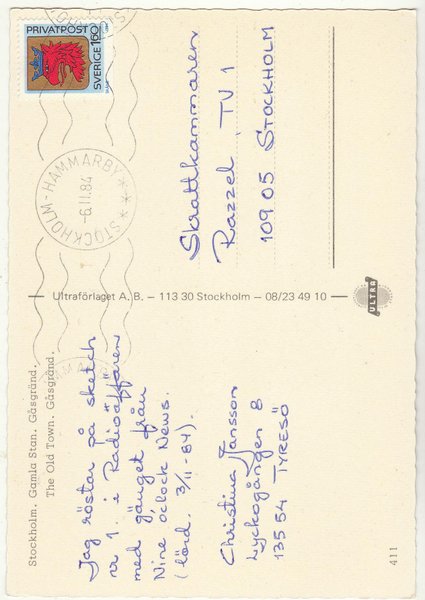 PRIVATPOST
SVERIGE 1.60
STOCKHOLM-HAMMARBY
-6.11.84
Skrattkammaren
Razzel, TV 1
109 05 STOCKHOLM
Ultraförlaget A. B. — 113 30 Stockholm — 08/23 49 10
ULTRA
Stockholm. Gamla Stan. Gåsgränd.
The Old Town. Gåsgränd.
Jag röstar på sketch
nr 1 i Radioäffären
med gänget från
Nine o'clock News.
(lörd. 3/11-84).
Christina Jansson
Lyckogången 8
135 54 TYRESÖ
411